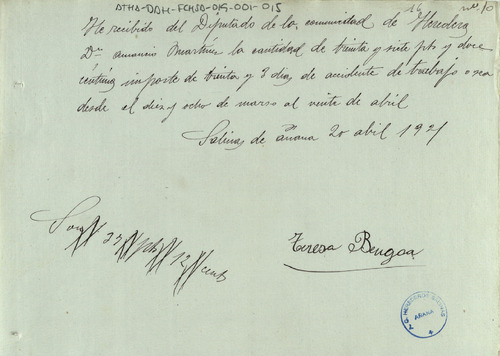 ATHA-DDH-FCHSD-015-001-015
19 nº 10
He recibido del Diputado de la comunidad de Herederos
Dn amancio Martinez la cantidad de treinta y siete pts y doce
centimos importe de treinta y 3 dias de accidente de trabajo o sea
desde el diez y ocho de marzo al veinte de abril
Salinas de Añana 20 abril 1921
Son 37 pts 12 cents
Teresa Bengoa
AÑANA